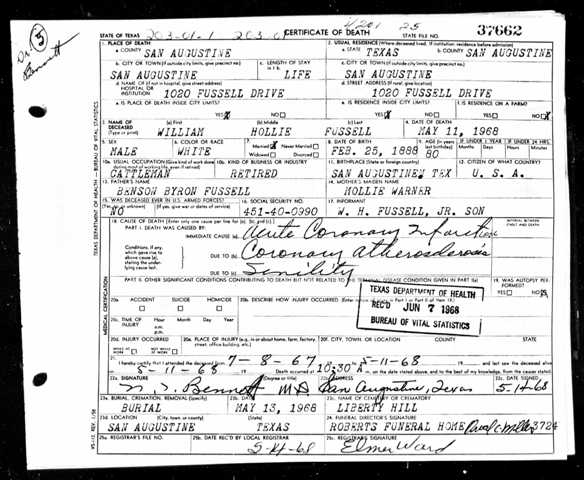 Dr. Bennett
5
STATE OF TEXAS
CERTIFICATE OF DEATH
STATE FILE NO.
37662
1. PLACE OF DEATH
a. COUNTY SAN AUGUSTINE
2. USUAL RESIDENCE (Where deceased lived. If institution: residence before admission)
a. STATE TEXAS
b. COUNTY SAN AUGUSTINE
b. CITY OR TOWN (If outside city limits, give precinct no.)
SAN AUGUSTINE
c. LENGTH OF STAY in 1 b.
LIFE
c. CITY OR TOWN (If outside city limits, give precinct no.)
SAN AUGUSTINE
d. NAME OF (If not in hospital, give street address) HOSPITAL OR INSTITUTION
1020 FUSSELL DRIVE
d. STREET ADDRESS (If rural, give location)
1020 FUSSELL DRIVE
e. IS PLACE OF DEATH INSIDE CITY LIMITS?
YES X NO
e. IS RESIDENCE INSIDE CITY LIMITS?
YES X NO
f. IS RESIDENCE ON A FARM?
YES NO X
3. NAME OF DECEASED (Type or print)
(a) First WILLIAM
(b) Middle HOLLIE
(c) Last FUSSELL
4. DATE OF DEATH
MAY 11, 1968
5. SEX
MALE
6. COLOR OR RACE
WHITE
7. Married X Never Married
Widowed Divorced
8. DATE OF BIRTH
FEB. 25, 1888
9. AGE (In years last birthday)
80
IF UNDER 1 YEAR
IF UNDER 24 HRS.
10a. USUAL OCCUPATION (Give kind of work done during most of working life, even if retired)
CATTLEMAN
10b. KIND OF BUSINESS OR INDUSTRY
RETIRED
11. BIRTHPLACE (State or foreign country)
SAN AUGUSTINE, TEX
12. CITIZEN OF WHAT COUNTRY?
U. S. A.
13. FATHER'S NAME
BENSON BYRON FUSSELL
14. MOTHER'S MAIDEN NAME
HOLLIE WARNER
15. WAS DECEASED EVER IN U.S. ARMED FORCES?
(Yes, no, or unknown) (If yes, give war or dates of service)
NO
16. SOCIAL SECURITY NO.
451-40-0990
17. INFORMANT
W. H. FUSSELL, JR. SON
18. CAUSE OF DEATH (Enter only one cause per line for (a), (b), and (c).)
PART I. DEATH WAS CAUSED BY:
IMMEDIATE CAUSE (a) Acute Coronary Infarction
INTERVAL BETWEEN ONSET AND DEATH
Conditions, if any, which gave rise to above cause (a), stating the underlying cause last.
DUE TO (b) Coronary atherosclerosis
DUE TO (c) Senility
PART II. OTHER SIGNIFICANT CONDITIONS CONTRIBUTING TO DEATH BUT NOT RELATED TO THE TERMINAL DISEASE CONDITION GIVEN IN PART I(a)
19. WAS AUTOPSY PERFORMED?
YES NO X
TEXAS DEPARTMENT OF HEALTH
REC'D JUN 7 1968
BUREAU OF VITAL STATISTICS
20a. ACCIDENT SUICIDE HOMICIDE
20b. DESCRIBE HOW INJURY OCCURRED. (Enter nature of injury in Part I or Part II of item 18.)
20c. TIME OF INJURY
Hour Month Day Year
a.m.
p.m.
20d. INJURY OCCURRED
WHILE AT WORK NOT WHILE AT WORK
20e. PLACE OF INJURY (e.g., in or about home, farm, factory, street, office building, etc.)
20f. CITY, TOWN, OR LOCATION
COUNTY
STATE
21. I hereby certify that I attended the deceased from 7-8-67 to 5-11-68 and last saw the deceased alive
5-11-68 Death occurred at 10:30 A m. on the date stated above, and to the best of my knowledge, from the causes stated.
22a. SIGNATURE
Bennett MD
22b. ADDRESS
San Augustine, Texas
22c. DATE SIGNED
5-14-68
23a. BURIAL, CREMATION, REMOVAL (Specify)
BURIAL
23b. DATE
MAY 13, 1968
23c. NAME OF CEMETERY OR CREMATORY
LIBERTY HILL
23d. LOCATION (City, town, or county) (State)
SAN AUGUSTINE TEXAS
24. FUNERAL DIRECTOR'S SIGNATURE
ROBERTS FUNERAL HOME 3724
25a. REGISTRAR'S FILE NO.
25b. DATE REC'D BY LOCAL REGISTRAR
5-14-68
25c. REGISTRAR'S SIGNATURE
Elmer Ward
TEXAS DEPARTMENT OF HEALTH — BUREAU OF VITAL STATISTICS
MEDICAL CERTIFICATION